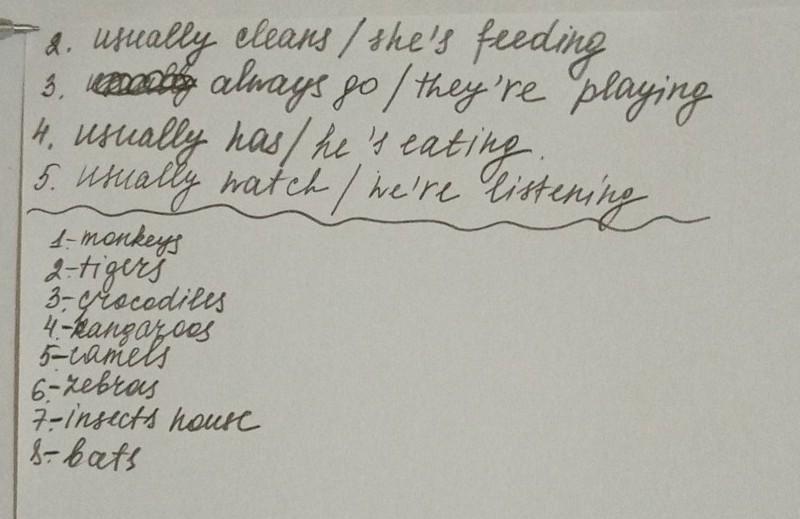 2. usually cleans / she's feeding
3. always go / they're playing
4. usually has / he's eating.
5. usually watch / we're listening
1-monkeys
2-tigers
3-crocodiles
4-kangaroos
5-camels
6-zebras
7-insects house
8-bats